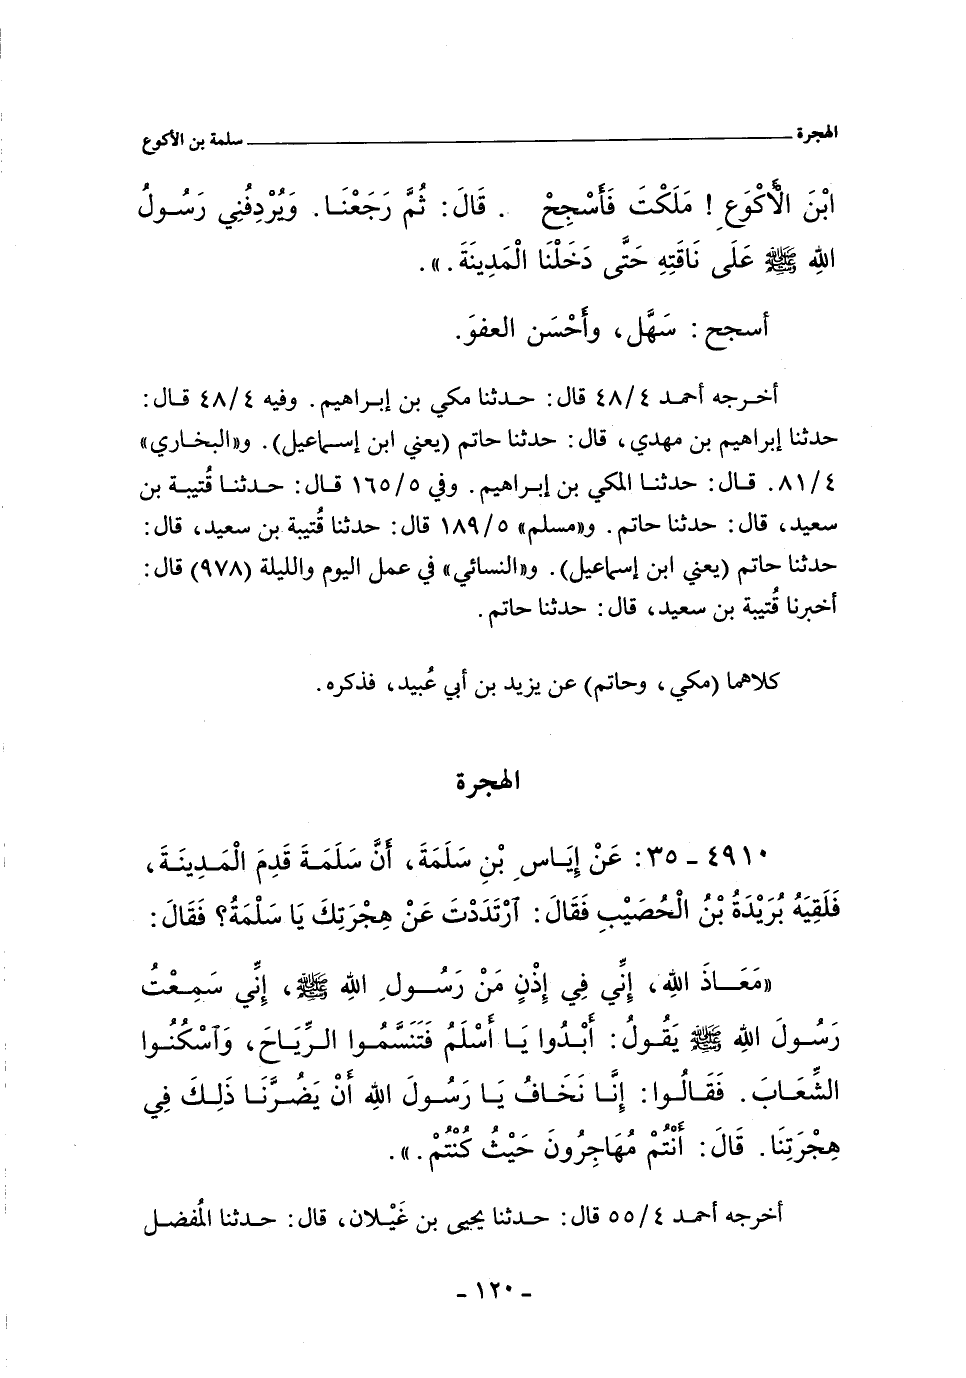 الهجرة ــــــــــــــــــــــــــــــــــــــــــــــــــــــــ سلمة بن الأكوع
ابْنَ الْأَكْوَعِ ! مَلَكْتَ فَأَسْجِحْ . قَالَ: ثُمَّ رَجَعْنَا. وَيُرْدِفُنِي رَسُولُ
اللهِ ﷺ عَلَى نَاقَتِهِ حَتَّى دَخَلْنَا الْمَدِينَةَ.».
أسجح: سَهَّل، وأَحْسَن العفوَ.
أخرجه أحمد ٤/٤٨ قال: حدثنا مكي بن إبراهيم. وفيه ٤/٤٨ قال:
حدثنا إبراهيم بن مهدي، قال: حدثنا حاتم (يعني ابن إسماعيل). و«البخاري»
٤/٨١. قال: حدثنا المكي بن إبراهيم. وفي ٥/١٦٥ قال: حدثنا قُتيبة بن
سعيد، قال: حدثنا حاتم. و«مسلم» ٥/١٨٩ قال: حدثنا قُتيبة بن سعيد، قال:
حدثنا حاتم (يعني ابن إسماعيل). و«النسائي» في عمل اليوم والليلة (٩٧٨) قال:
أخبرنا قُتيبة بن سعيد، قال: حدثنا حاتم.
كلاهما (مكي، وحاتم) عن يزيد بن أبي عُبيد، فذكره.
الهجرة
٤٩١٠ ـ ٣٥: عَنْ إِيَاسِ بْنِ سَلَمَةَ، أَنَّ سَلَمَةَ قَدِمَ الْمَدِينَةَ،
فَلَقِيَهُ بُرَيْدَةُ بْنُ الْحُصَيْبِ فَقَالَ: آرْتَدَدْتَ عَنْ هِجْرَتِكَ يَا سَلْمَةُ؟ فَقَالَ:
«مَعَاذَ اللهِ، إِنِّي فِي إِذْنٍ مَنْ رَسُولِ اللهِ ﷺ، إِنِّي سَمِعْتُ
رَسُولَ اللهِ ﷺ يَقُولُ: أَبْدُوا يَا أَسْلَمُ فَتَنَسَّمُوا الرِّيَاحَ، وَآسْكُنُوا
الشِّعَابَ. فَقَالُوا: إِنَّا نَخَافُ يَا رَسُولَ اللهِ أَنْ يَضُرَّنَا ذَلِكَ فِي
هِجْرَتِنَا. قَالَ: أَنْتُمْ مُهَاجِرُونَ حَيْثُ كُنْتُمْ.».
أخرجه أحمد ٤/٥٥ قال: حدثنا يحيى بن غَيْلان، قال: حدثنا المُفضل
ـ ١٢٠ ـ